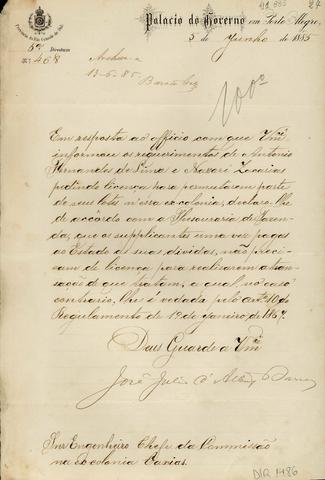 91.883 24
Palacio do Governo em Porto Alegre,
5 de Junho de 1885
Provincia do Rio Grande do Sul
Directoria
N.º 468
13-6-85
100º
Em resposta ao officio com que Vmcê
informou os requerimentos de Antonio
Fernandes de Lima e Nazare Zacarias
pedindo licença para permutarem parte
de seus lotes n'essa ex-colonia, declaro-lhe
de accôrdo com a Thesouraria de Fazen-
da, que os supplicantes uma vez pagos
ao Estado de suas dividas, não preci-
sam de licença para realisarem a tran-
sação de que tratam, a qual no caso
contrario, lhes é vedada pelo artº 10 do
Regulamento de 19 de Janeiro de 1867.
Deus Guarde a Vmcê
José Julio d'Albuq. Barros
Snr. Engenheiro Chefe da Commissão
na ex-colonia Caxias.
DIR 1486